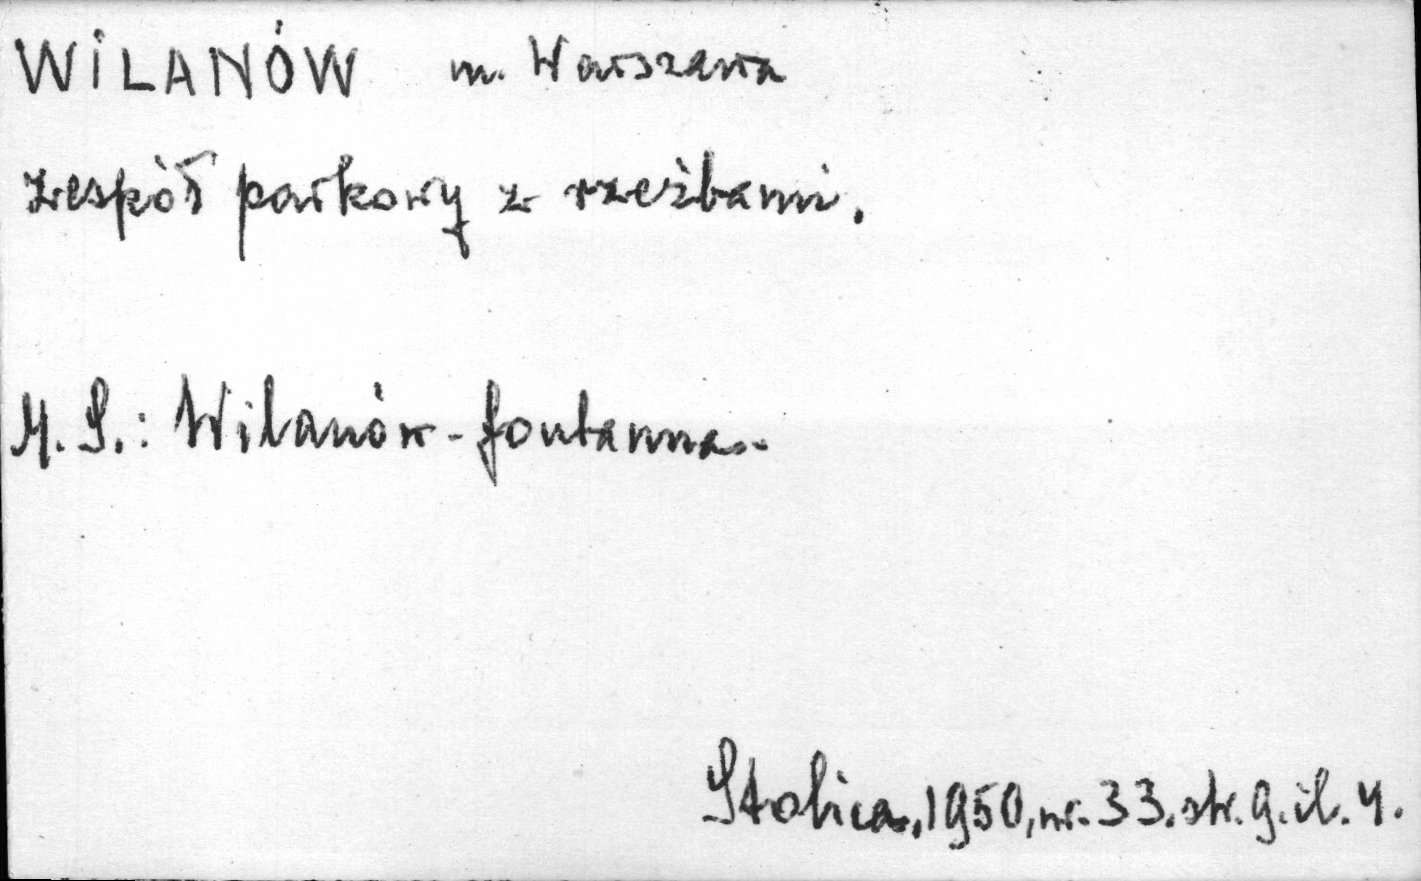 WILANÓW m. Warszawa
zespół parkowy z rzeźbami.
M. S.: Wilanów - fontanna.
Stolica, 1950, nr. 33. str. 9. il. 4.